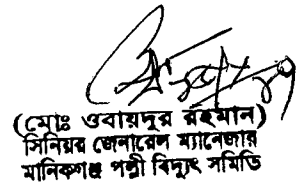 (মোঃ ওবায়দুর রহমান)
সিনিয়র জেনারেল ম্যানেজার
মানিকগঞ্জ পল্লী বিদ্যুৎ সমিতি